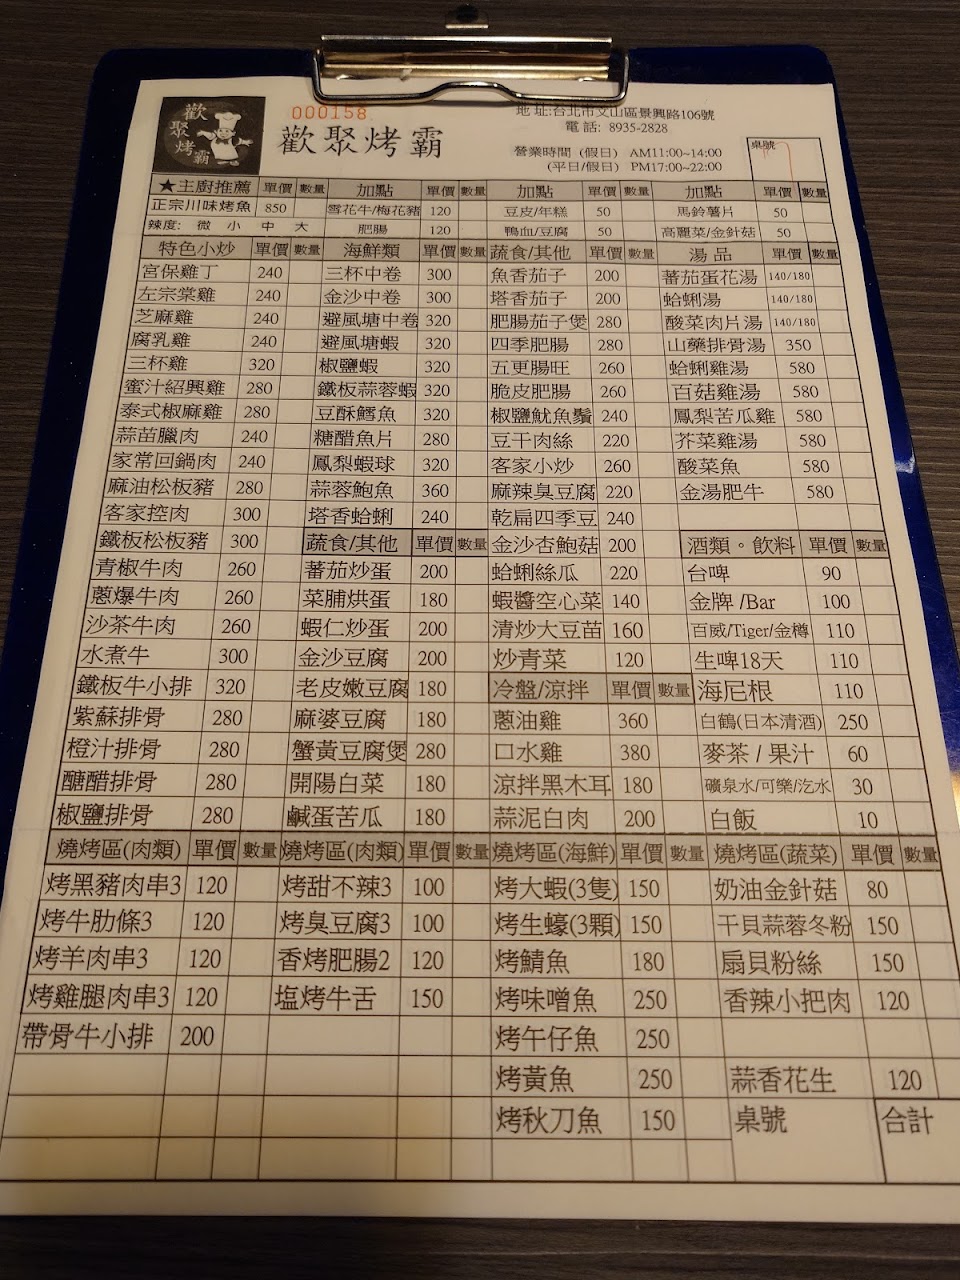 歡聚烤霸
000158
歡聚烤霸
地址:台北市文山區景興路106號
電話: 8935-2828
營業時間 (假日) AM11:00~14:00
(平日/假日) PM17:00~22:00
桌號
★主廚推薦 單價 數量 加點 單價 數量 加點 單價 數量 加點 單價 數量
正宗川味烤魚 850 雪花牛/梅花豬 120 豆皮/年糕 50 馬鈴薯片 50
辣度: 微 小 中 大 肥腸 120 鴨血/豆腐 50 高麗菜/金針菇 50
特色小炒 單價 數量 海鮮類 單價 數量 蔬食/其他 單價 數量 湯品 單價 數量
宮保雞丁 240 三杯中卷 300 魚香茄子 200 蕃茄蛋花湯 140/180
左宗棠雞 240 金沙中卷 300 塔香茄子 200 蛤蜊湯 140/180
芝麻雞 240 避風塘中卷 320 肥腸茄子煲 280 酸菜肉片湯 140/180
腐乳雞 240 避風塘蝦 320 四季肥腸 280 山藥排骨湯 350
三杯雞 320 椒鹽蝦 320 五更腸旺 260 蛤蜊雞湯 580
蜜汁紹興雞 280 鐵板蒜蓉蝦 320 脆皮肥腸 260 百菇雞湯 580
泰式椒麻雞 280 豆酥鱈魚 320 椒鹽魷魚鬚 240 鳳梨苦瓜雞 580
蒜苗臘肉 240 糖醋魚片 280 豆干肉絲 220 芥菜雞湯 580
家常回鍋肉 240 鳳梨蝦球 320 客家小炒 260 酸菜魚 580
麻油松板豬 280 蒜蓉鮑魚 360 麻辣臭豆腐 220 金湯肥牛 580
客家控肉 300 塔香蛤蜊 240 乾扁四季豆 240
鐵板松板豬 300 蔬食/其他 單價 數量 金沙杏鮑菇 200 酒類。飲料 單價 數量
青椒牛肉 260 蕃茄炒蛋 200 蛤蜊絲瓜 220 台啤 90
蔥爆牛肉 260 菜脯烘蛋 180 蝦醬空心菜 140 金牌 /Bar 100
沙茶牛肉 260 蝦仁炒蛋 200 清炒大豆苗 160 百威/Tiger/金樽 110
水煮牛 300 金沙豆腐 200 炒青菜 120 生啤18天 110
鐵板牛小排 320 老皮嫩豆腐 180 冷盤/涼拌 單價 數量 海尼根 110
紫蘇排骨 280 麻婆豆腐 180 蔥油雞 360 白鶴(日本清酒) 250
橙汁排骨 280 蟹黃豆腐煲 280 口水雞 380 麥茶 / 果汁 60
醣醋排骨 280 開陽白菜 180 涼拌黑木耳 180 礦泉水/可樂/汔水 30
椒鹽排骨 280 鹹蛋苦瓜 180 蒜泥白肉 200 白飯 10
燒烤區(肉類) 單價 數量 燒烤區(肉類) 單價 數量 燒烤區(海鮮) 單價 數量 燒烤區(蔬菜) 單價 數量
烤黑豬肉串3 120 烤甜不辣3 100 烤大蝦(3隻) 150 奶油金針菇 80
烤牛肋條3 120 烤臭豆腐3 100 烤生蠔(3顆) 150 干貝蒜蓉冬粉 150
烤羊肉串3 120 香烤肥腸2 120 烤鯖魚 180 扇貝粉絲 150
烤雞腿肉串3 120 塩烤牛舌 150 烤味噌魚 250 香辣小把肉 120
帶骨牛小排 200 烤午仔魚 250
烤黃魚 250 蒜香花生 120
烤秋刀魚 150 桌號 合計